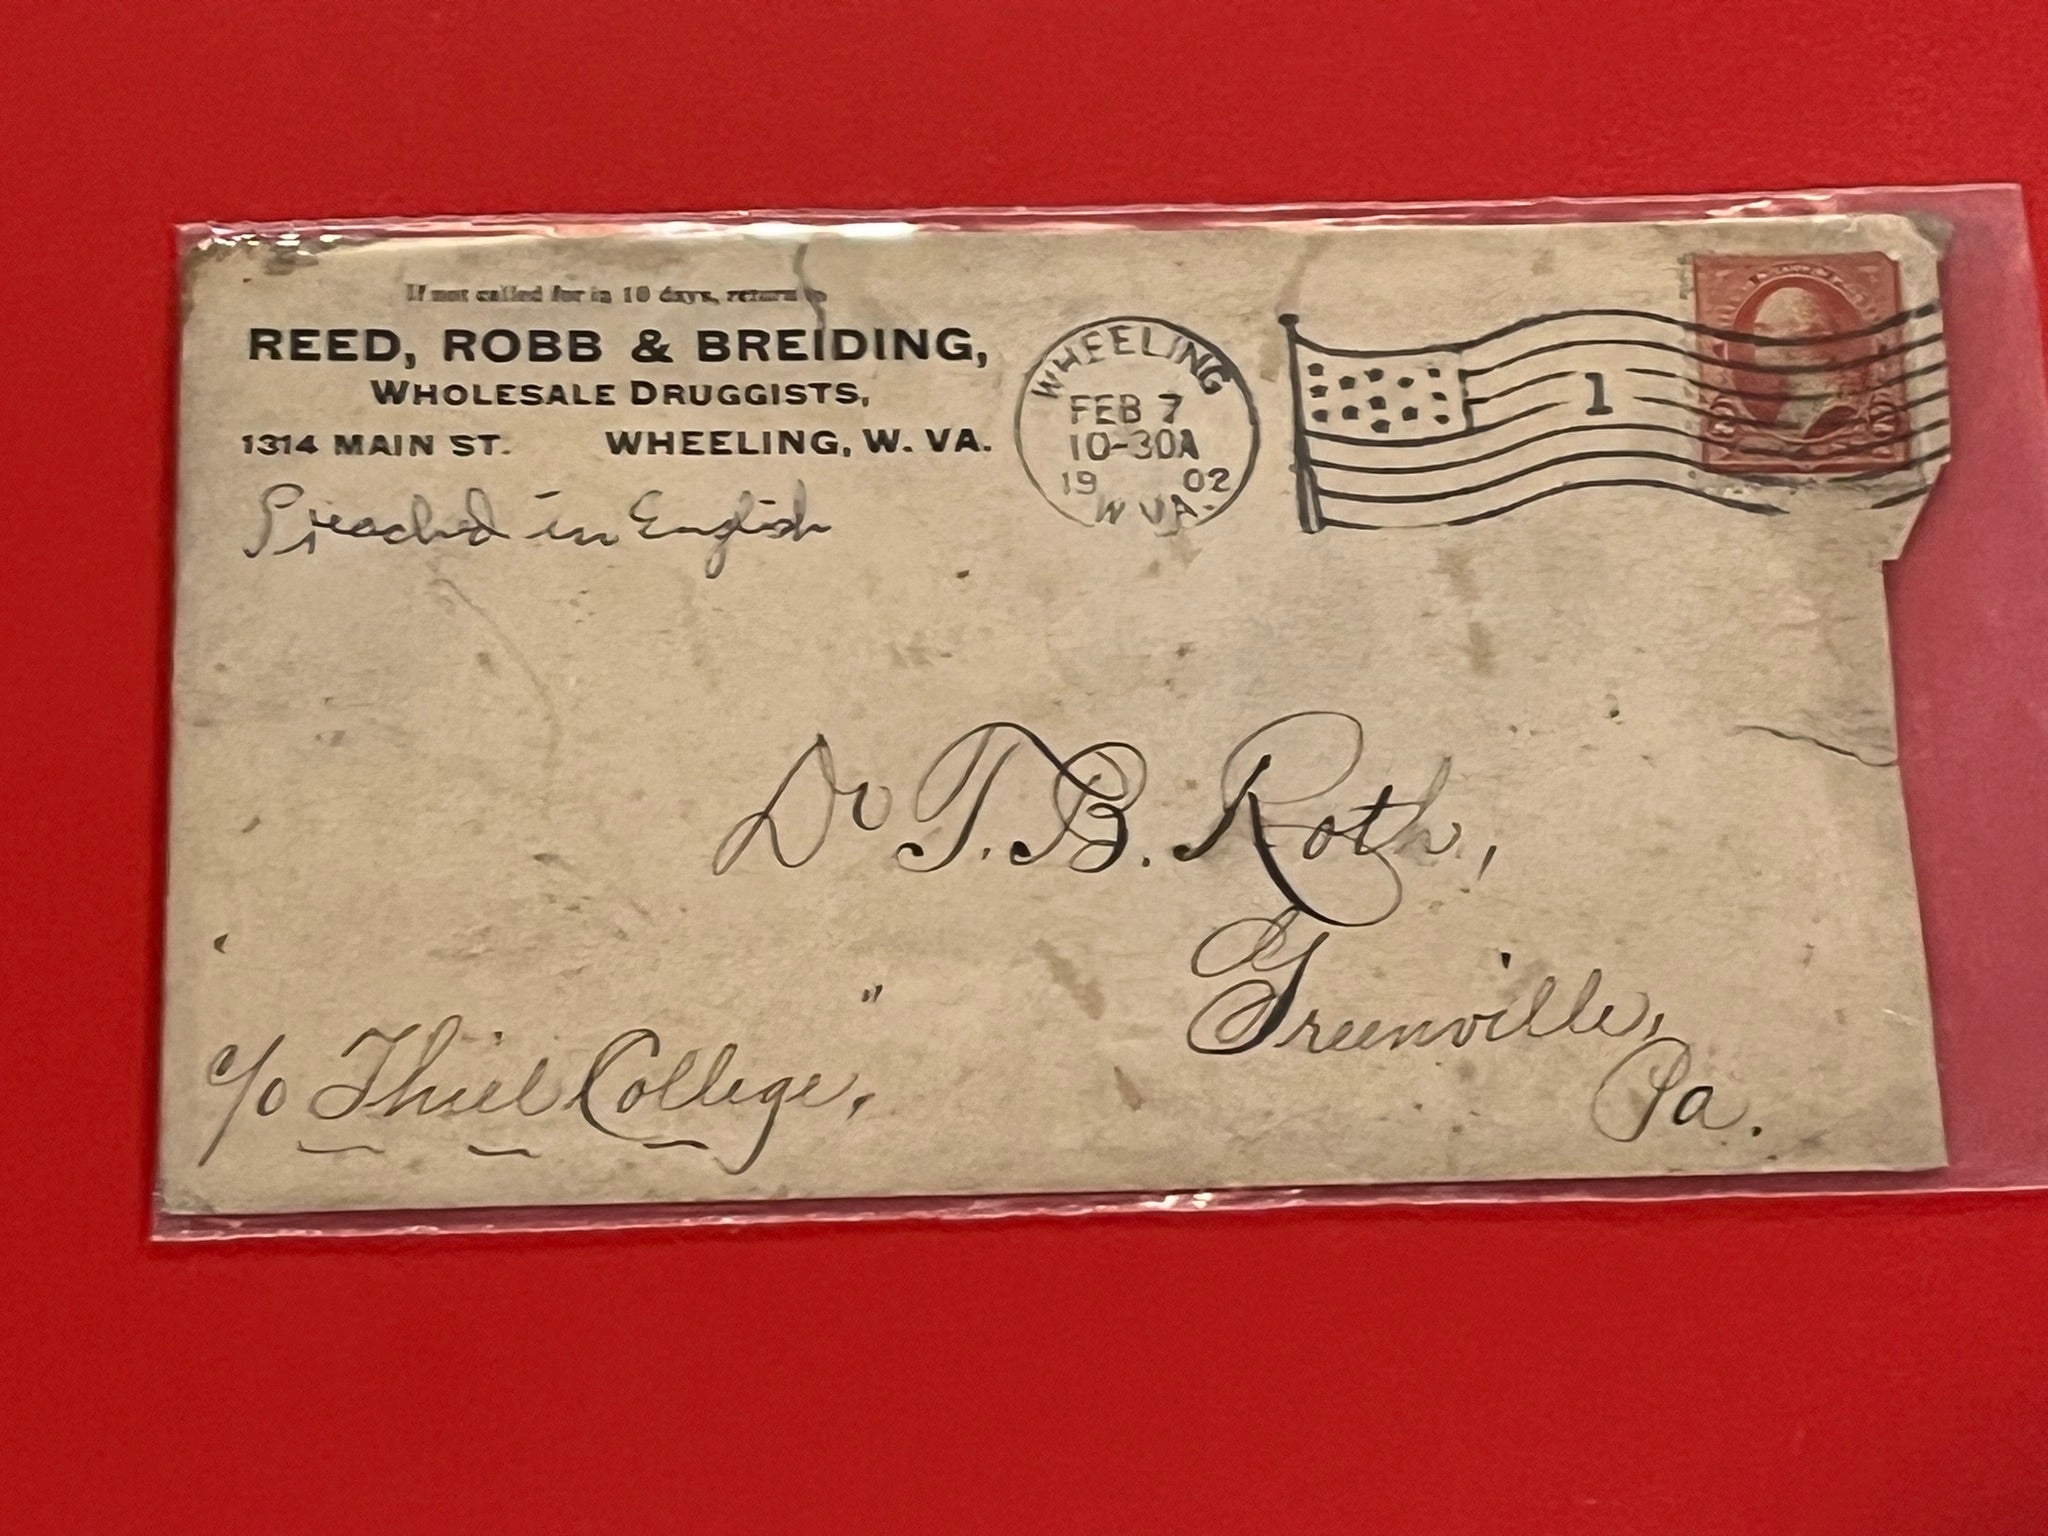 If not called for in 10 days, return to
REED, ROBB & BREIDING,
WHOLESALE DRUGGISTS,
1314 MAIN ST. WHEELING, W. VA.
Preached in English
WHEELING
FEB 7
10-30A
19 02
W VA.
1
Dr T. B. Roth,
Greenville,
Pa.
c/o Thiel College,